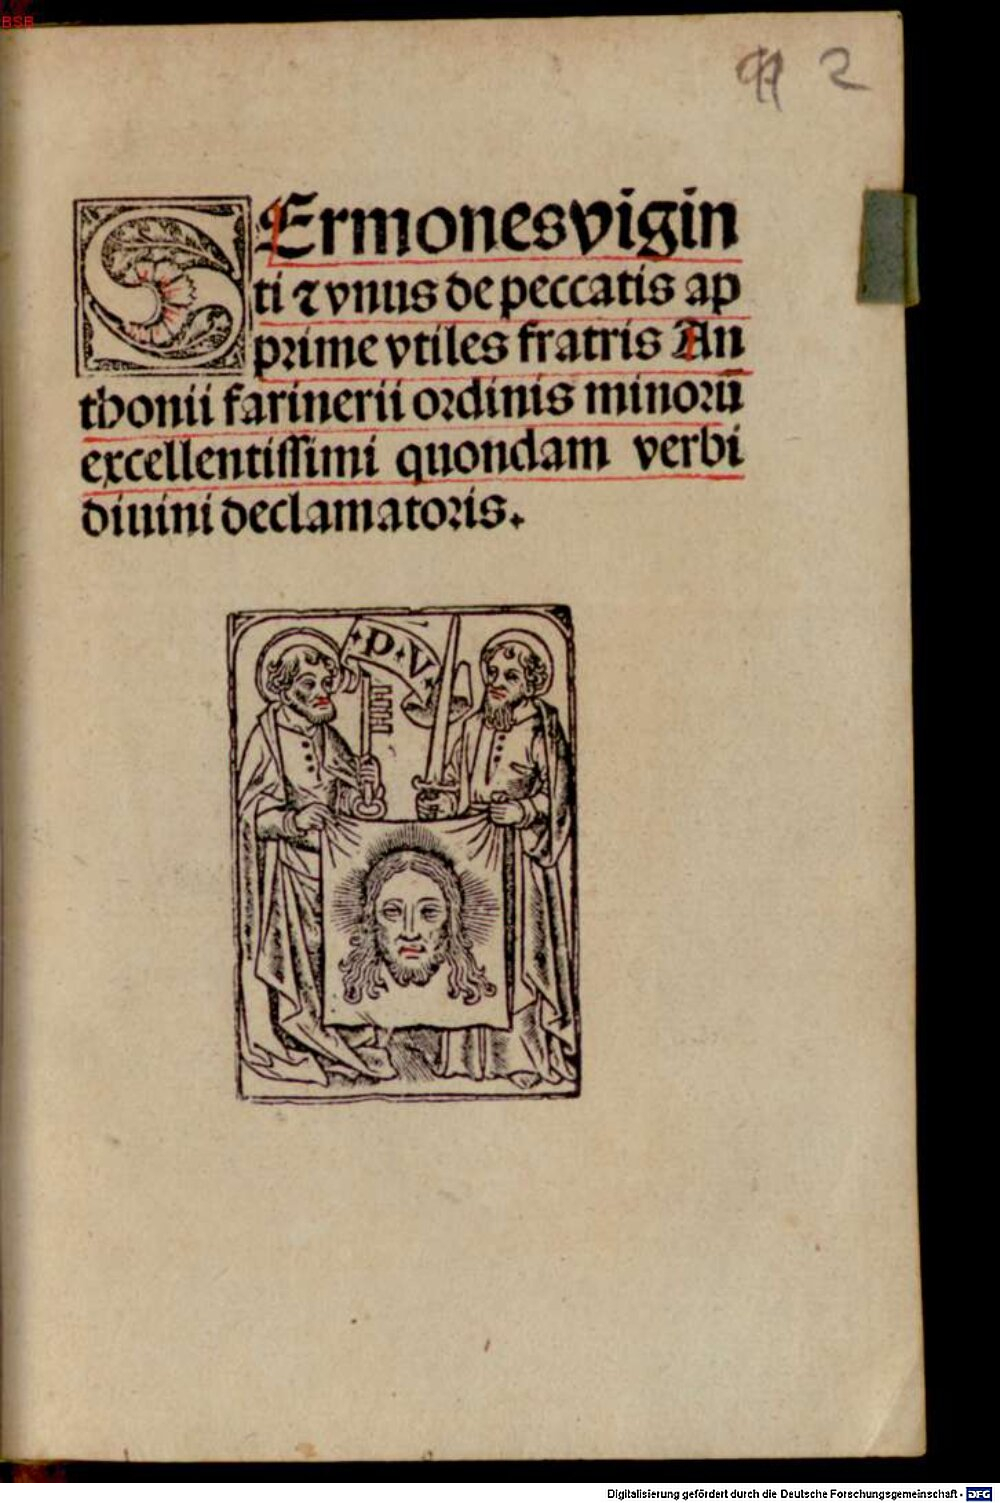 BSB
2
SErmones vigin
ti ⁊ vnus de peccatis ap
prime vtiles fratris An
thonii farinerii ordinis minorū
excellentissimi quondam verbi
diuini declamatoris.
P V
Digitalisierung gefördert durch die Deutsche Forschungsgemeinschaft - DFG